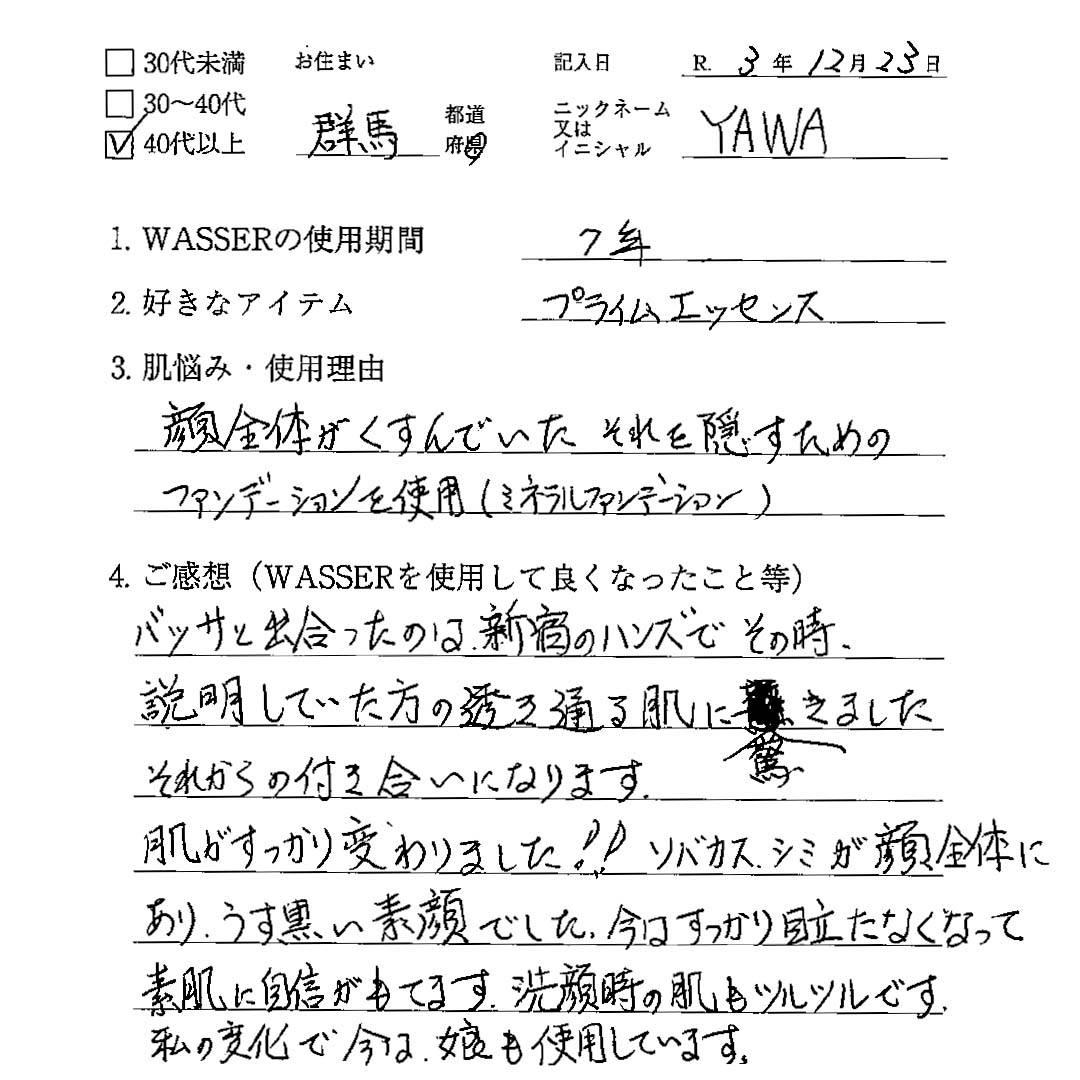 □ 30代未満 お住まい 記入日 R. 3年12月23日
□ 30～40代 群馬 都道府県 ニックネーム又はイニシャル YAWA
☑ 40代以上
1. WASSERの使用期間 7年
2. 好きなアイテム プライムエッセンス
3. 肌悩み・使用理由
顔全体がくすんでいた それを隠すための
ファンデーションを使用(ミネラルファンデーション)
4. ご感想（WASSERを使用して良くなったこと等）
バッサと出合ったのは、新宿のハンズで その時、
説明していた方の透き通る肌に驚きました
それからの付き合いになります。
肌がすっかり変わりました!! ソバカス、シミが顔全体に
あり、うす黒い素顔でした、今はすっかり目立たなくなって
素肌に自信がもてます。洗顔時の肌もツルツルです。
私の変化で今は、娘も使用しています。